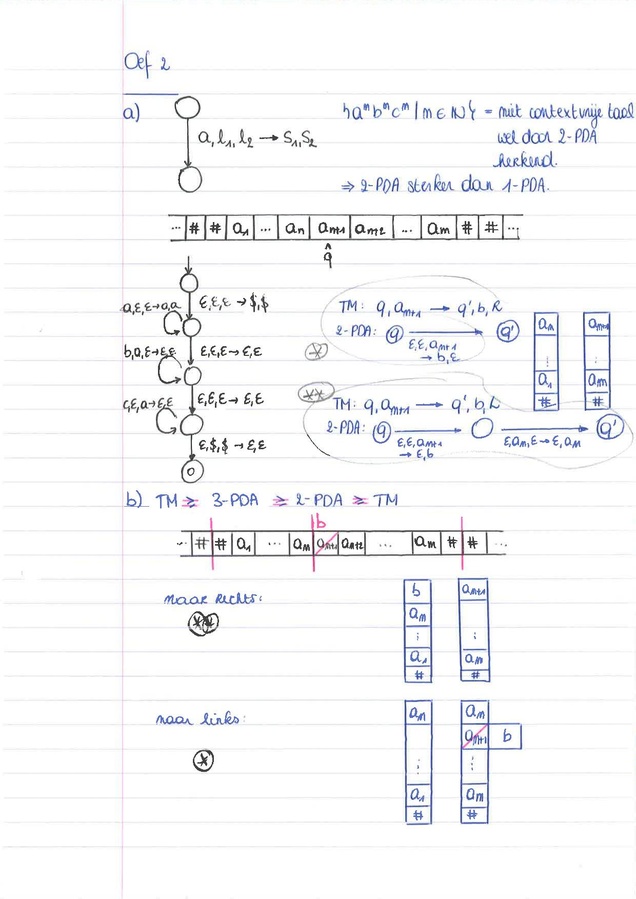 Oef 2
a)
a, l₁, l₂ → S₁, S₂
{aᵐbᵐcᵐ | m ∈ ℕ} = niet contextvrije taal
wel door 2-PDA
herkend.
⇒ 2-PDA sterker dan 1-PDA.
... # # a₁ ... aₙ aₘ₊₁ aₘ₊₂ ... aₘ # # ...
^
q
a,ε,ε→a,a
ε,ε,ε → $,$
b,a,ε→ε,ε
ε,ε,ε → ε,ε
c,ε,a→ε,ε
ε,ε,ε → ε,ε
ε,$,$ → ε,ε
TM: q, aₘ₊₁ → q', b, R
2-PDA: q q'
ε,ε,aₘ₊₁
→ b,ε
*
aₘ ⋮ a₁ #
aₘ₊₁ ⋮ aₘ #
**
TM: q, aₘ₊₁ → q', b, L
2-PDA: q q'
ε,ε,aₘ₊₁
→ ε,b
ε,aₘ,ε → ε,aₘ
b) TM ≥ 3-PDA ≥ 2-PDA ≥ TM
b
... # # a₁ ... aₘ aₘ₊₁ aₙ₊₂ ... aₘ # # ...
naar rechts:
**
b aₘ ⋮ a₁ #
aₘ₊₁ ⋮ aₘ #
naar links:
*
aₘ ⋮ a₁ #
aₘ aₘ₊₁ b ⋮ aₘ #